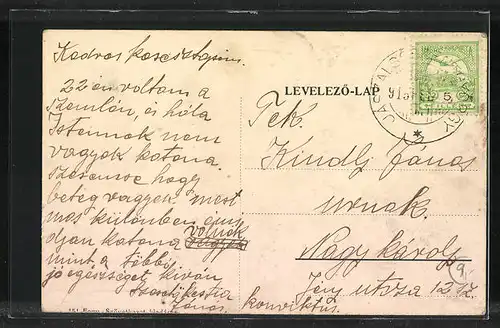 Kedves keresztapám.
22 én voltam a
Szemlén, és hála
Istennek nem
vagyok katona.
Szerencse hogy
beteg vagyok mert
mas különben én is
volnék
katona vagyok
mint a többi
jó egészséget kíván
János
LEVELEZŐ-LAP
915
Tek.
Kindli János
urnak.
Nagykároly
Jeny utcza 12
konviktus.